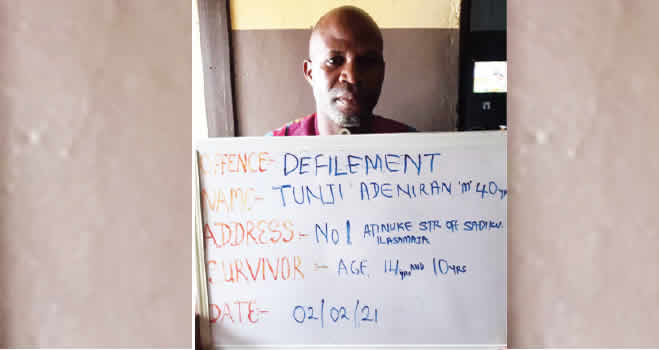 OFFENCE- DEFILEMENT
NAME- TUNJI ADENIRAN 'M' 40yrs
ADDRESS:- NO1 ATINUKE STR OFF SADIKU
ILASAMAJA
SURVIVOR :- AGE, 14yrs AND 10yrs
DATE- 02/02/21